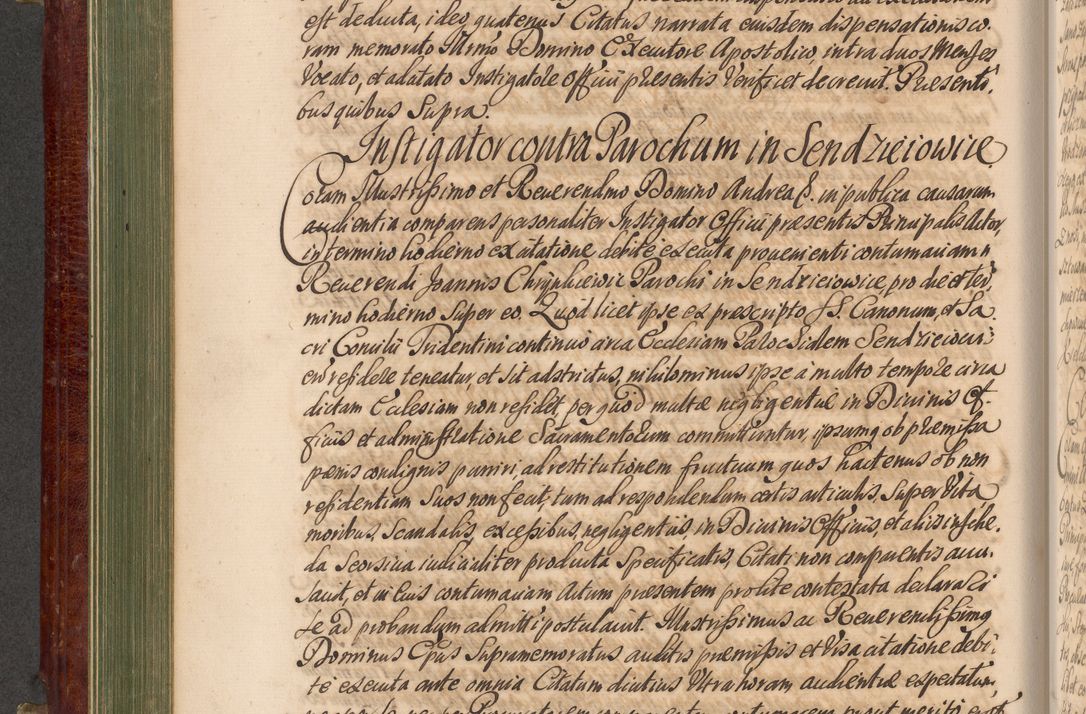 est deducta, ideo, quatenus Citatus narrata eiusdem dispensationis co-
ram memorato Illrmo Domino Executore Apostolico, intra duos Menses
Vocato, et adcitato Instigatore Officii presentis Verificet decrevit. Presenti-
bus quibus Supra.
Instigator contra Parochum in Sendzieiowice
Coram Illustrissimo et Reverendmo Domino Andrea E. in publica causarum
audientia comparens personaliter Instigator Officii presentis Principalis Actor,
in termino hodierno ex citatione debite executa provenienti contumaciam
Reverendi Joannis Parochi in Sendzieiowice, pro die et ter-
mino hodierno Super eo. Quod licet ipse ex prescripto SS. Canonum, et Sa-
cri Concilii Tridentini continuo circa Ecclesiam Parochialem Sendzieiovici-
en residere teneatur, et sit adstrictus, nihilominus ipse a multo tempore circa
dictam Ecclesiam non residet, per quod multæ negligentiæ in Divinis Of-
ficiis et administratione Sacramentorum committuntur, ipsumq ob præmissa
pœnis condignis puniri, ad restitutionem fructuum quos hactenus ob non
residentiam Suos non fecit, tum ad respondendum certis articulis, Super Vita
moribus, Scandalis, excessibus, negligentiis, in Divinis Officiis, et aliis in sche-
da Seorsiva iudicialiter producta Specificatis, Citati non comparentis accu-
savit, et in Eius contumaciam Actum presentem pro lite contestata declarari
se ad probandum admitti postulavit. Illustrissimus ac Reverendissimq
Dominus Epus Supramemoratus auditis præmissis et Visa citatione debi-
te executa ante omnia Citatum diutius Ultra horam audientiæ expectatum,